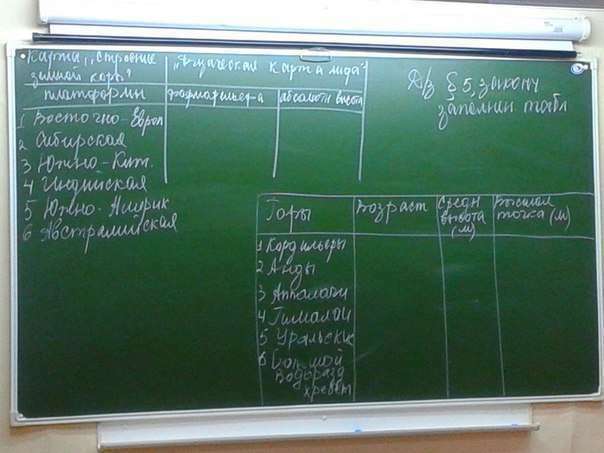 Карта „Строение земной коры"
„Физическая карта мира"
платформы
форма рельефа
абсолютн высота
1 Восточно-Европ
2 Сибирская
3 Южно-Кит.
4 Индийская
5 Южно-Америк
6 Австралийская
Д/з § 5, законч
заполнен табл
Горы
Возраст
Средн высота (м)
Высшая точка (м)
1 Кордильеры
2 Анды
3 Аппалачи
4 Гималаи
5 Уральские
6 Большой
Водоразд
хребет